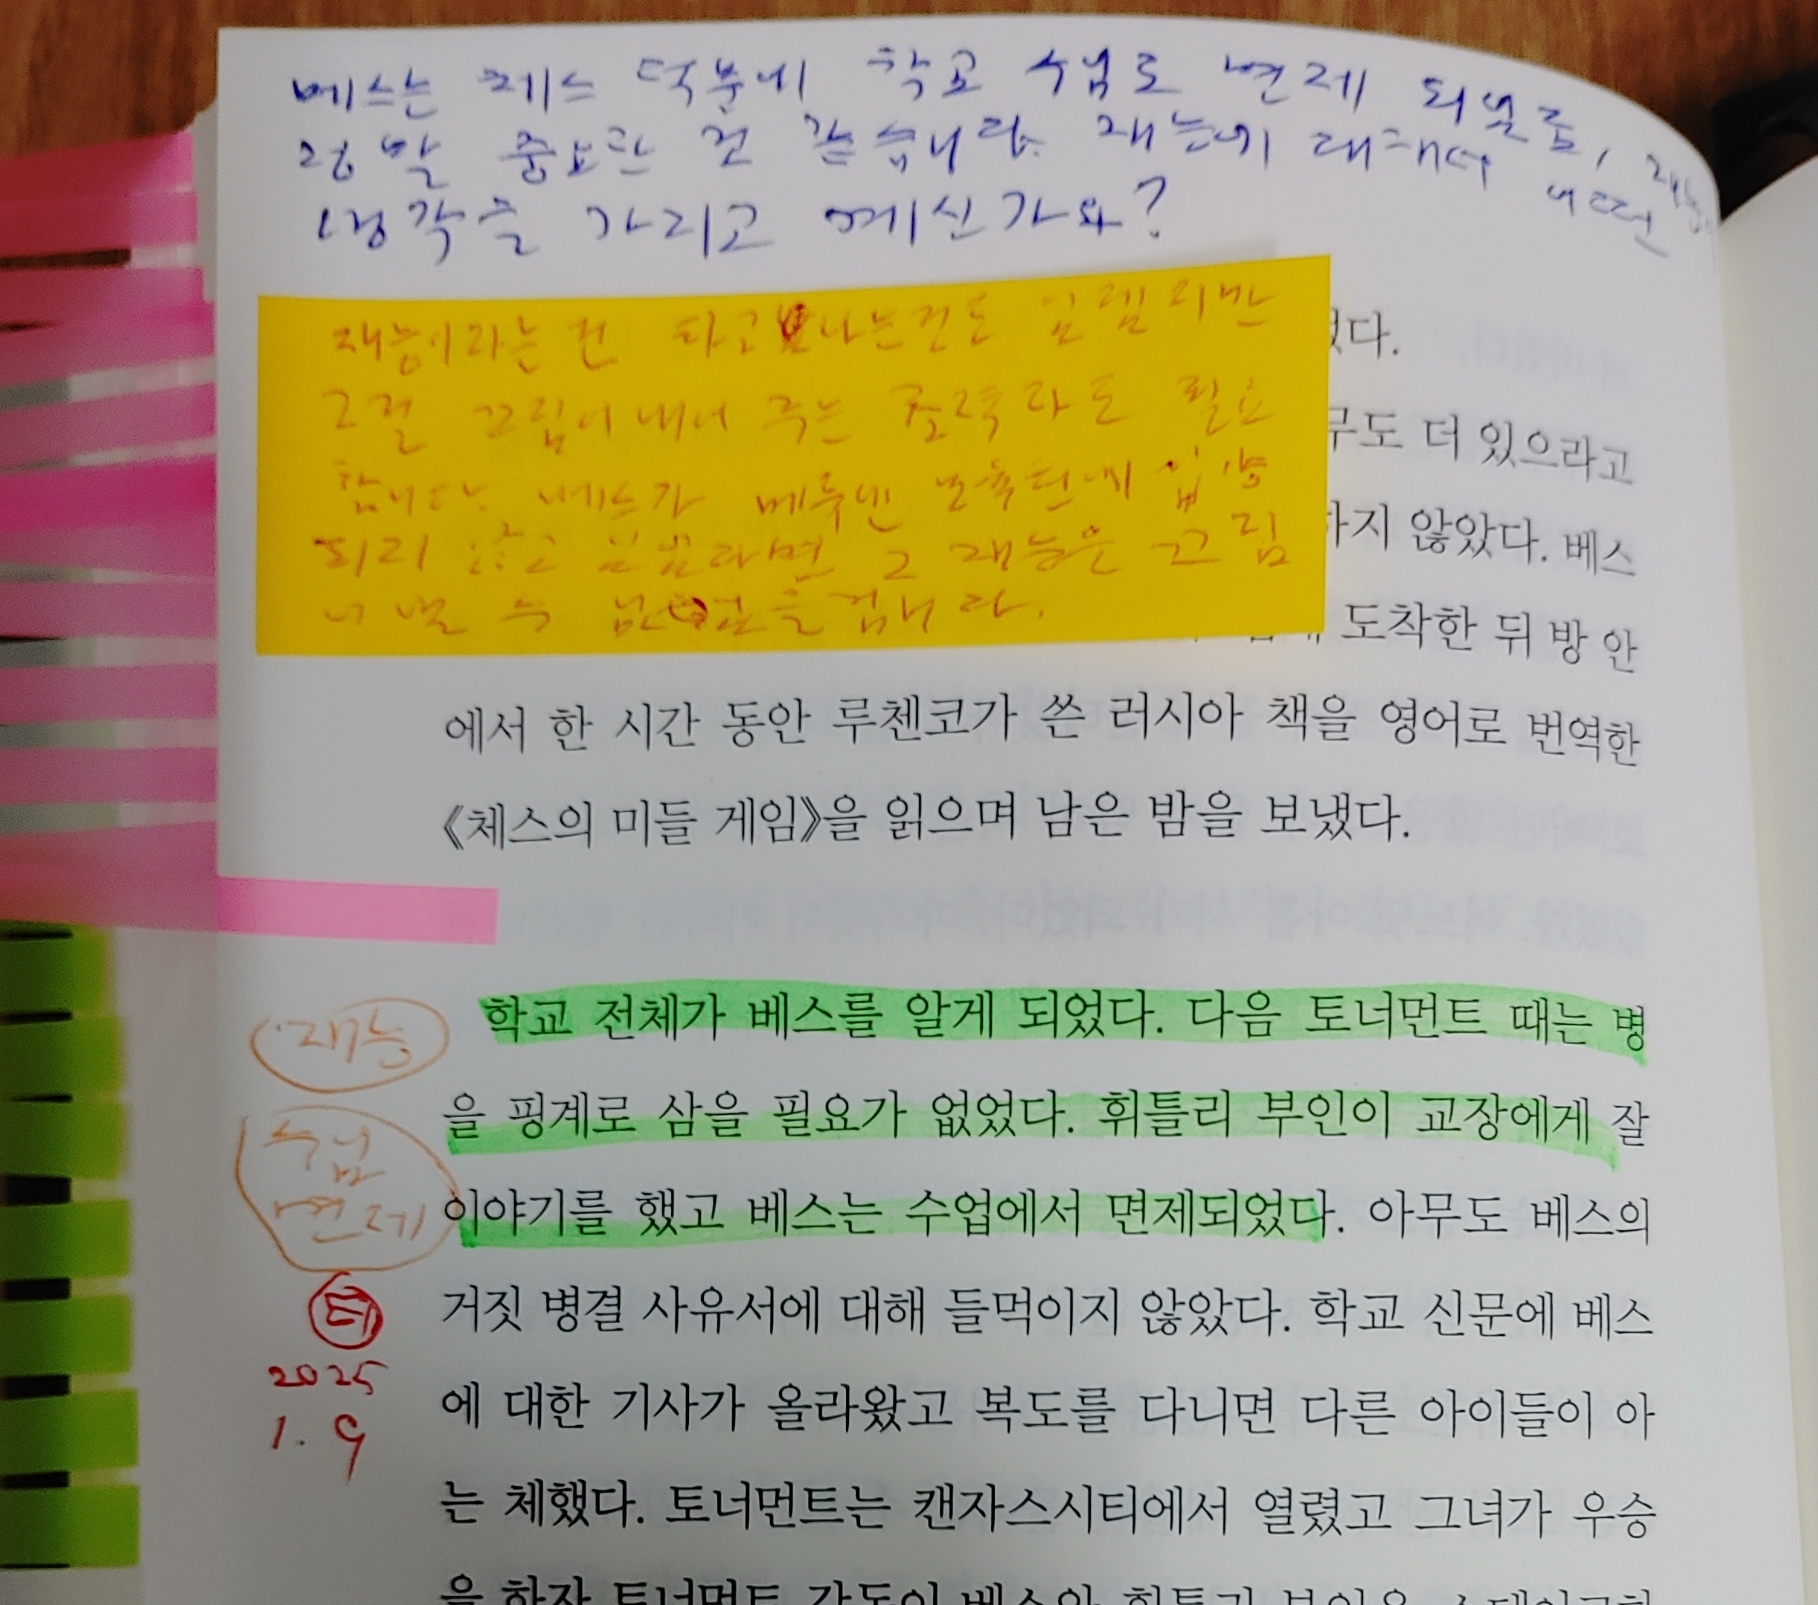 베스는 체스 덕분에 학교 수업도 면제 되었듯, 재능이
정말 중요한 것 같습니다. 재능에 대해서 어떤
생각을 가지고 계신가요?
재능이라는 건 타고나는건도
그걸 끄집어 내어 주는 조력자도 필요
합니다. 베스가 메투엔 보육원에 입양
되지 않고 그 재능은 끄집
어 낼 수
렸다.
무도 더 있으라고
하지 않았다. 베스
도착한 뒤 방 안
에서 한 시간 동안 루첸코가 쓴 러시아 책을 영어로 번역한
《체스의 미들 게임》을 읽으며 남은 밤을 보냈다.
재능
학교 전체가 베스를 알게 되었다. 다음 토너먼트 때는 병
을 핑계로 삼을 필요가 없었다. 휘틀리 부인이 교장에게 잘
수업
면제
이야기를 했고 베스는 수업에서 면제되었다. 아무도 베스의
거짓 병결 사유서에 대해 들먹이지 않았다. 학교 신문에 베스
토
2025
1.9
에 대한 기사가 올라왔고 복도를 다니면 다른 아이들이 아
는 체했다. 토너먼트는 캔자스시티에서 열렸고 그녀가 우승
을 하자 토너먼트 감독이 베스와 휘틀리 부인을